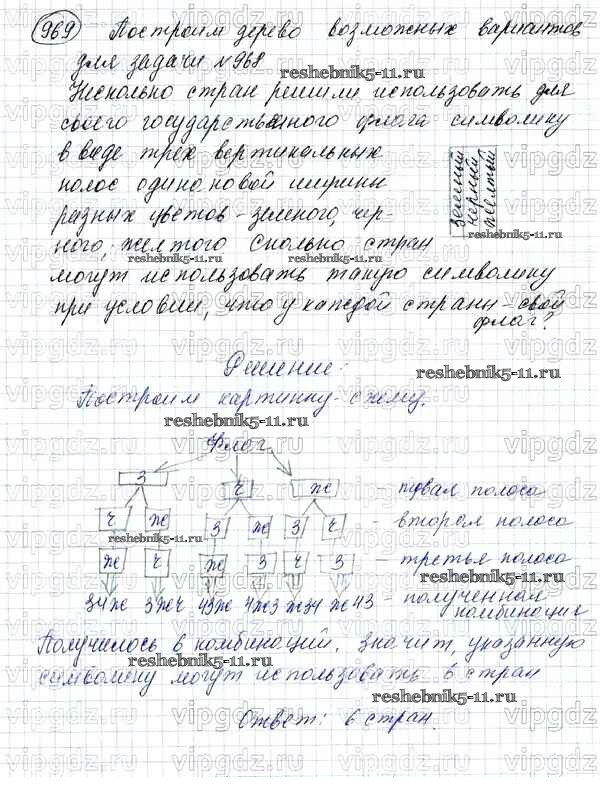 969 Построим дерево возможных вариантов
для задачи №968
Несколько стран решили использовать для
своего государственного флага символику
в виде трех вертикальных
полос одинаковой ширины
разных цветов - зеленого, чер-
ного, желтого Сколько стран
могут использовать такую символику
при условии, что у каждой страны свой
флаг?
зеленый
черный
желтый
Решение:
Построим картинку-схему.
Флаг
З Ч Ж - первая полоса
Ч Ж З Ж З Ч - вторая полоса
Ж Ч Ж З Ч З - третья полоса
ЗЧЖ ЗЖЧ ЧЗЖ ЧЖЗ ЖЗЧ ЖЧЗ - полученная
комбинация
Получилось 6 комбинаций. Значит, указанную
символику могут использовать 6 стран
Ответ: 6 стран.
reshebnik5-11.ru
reshebnik5-11.ru
reshebnik5-11.ru
reshebnik5-11.ru
reshebnik5-11.ru
reshebnik5-11.ru
reshebnik5-11.ru
reshebnik5-11.ru
reshebnik5-11.ru
reshebnik5-11.ru
vipgdz.ru